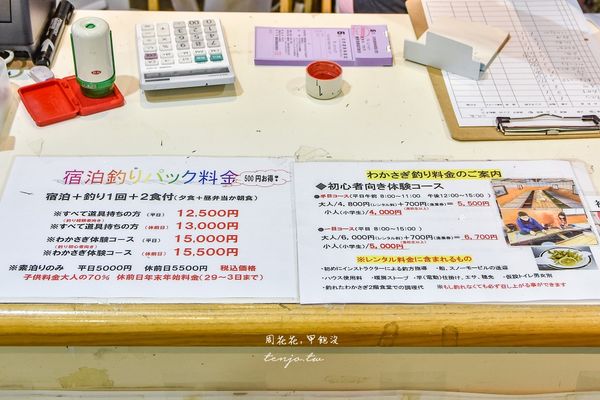 宿泊釣りパック料金 500円お得!
宿泊+釣り1回+2食付(夕食+昼弁当か朝食)
※すべて道具持ちの方 (平日) 12,500円
※すべて道具持ちの方 (休前日) 13,000円
※わかさぎ体験コース (平日) 15,000円
※わかさぎ体験コース (休前日) 15,500円
※素泊りのみ 平日5000円 休前日5500円 税込価格
子供料金大人の70% 休前日年末年始料金(29~3日まで)
わかさぎ釣り料金のご案内
◆初心者向き体験コース
大人/4,800円(レンタル料)+700円(遊漁券)= 5,500円
小人(小学生)/4,000円
大人/6,000円(レンタル料)+700円(遊漁券)= 6,700円
小人(小学生)/5,000円
※レンタル料金に含まれるもの
・初めにインストラクターによる釣方指導 ・船、スノーモービルの送迎
・ハウス使用料 ・暖房ストーブ ・竿(電動)仕掛け、エサ、穂先 ・仮設トイレ男女別
・釣れたわかさぎ2階食堂での調理代 ※もし釣れなくても必ず召し上がる事ができます
周花花,甲飽沒
tenjo.tw